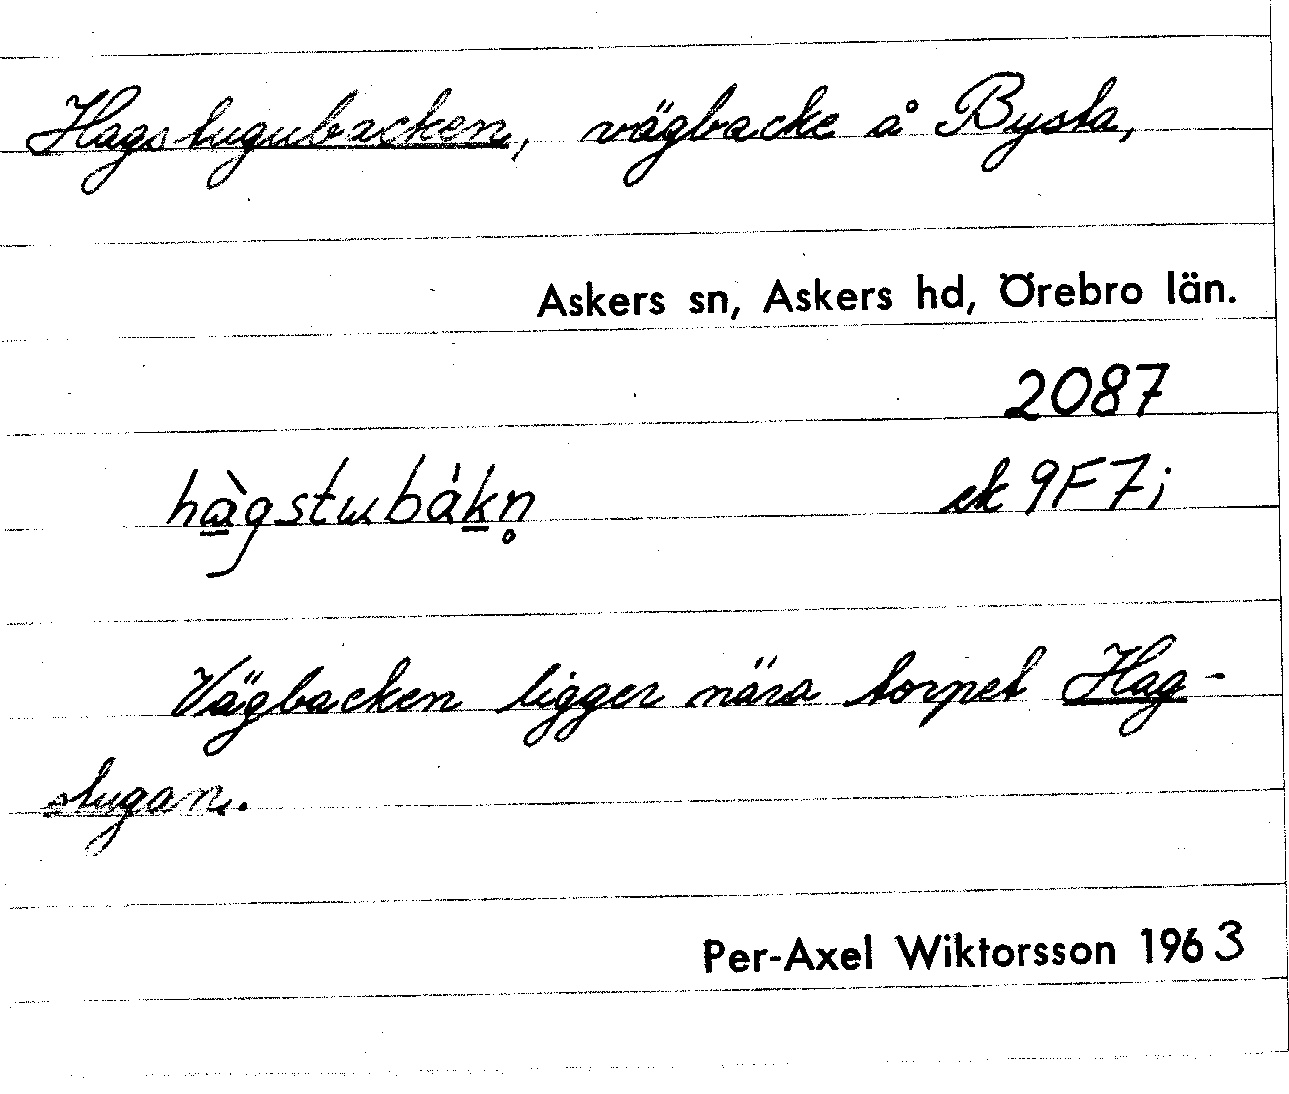 Hagstugubacken, vägbacke å Bysta,
Askers sn, Askers hd, Örebro län.
2087
hàgstubákn̥ ek 9F7i
Vägbacken ligger nära torpet Hag-
stugan.
Per-Axel Wiktorsson 1963